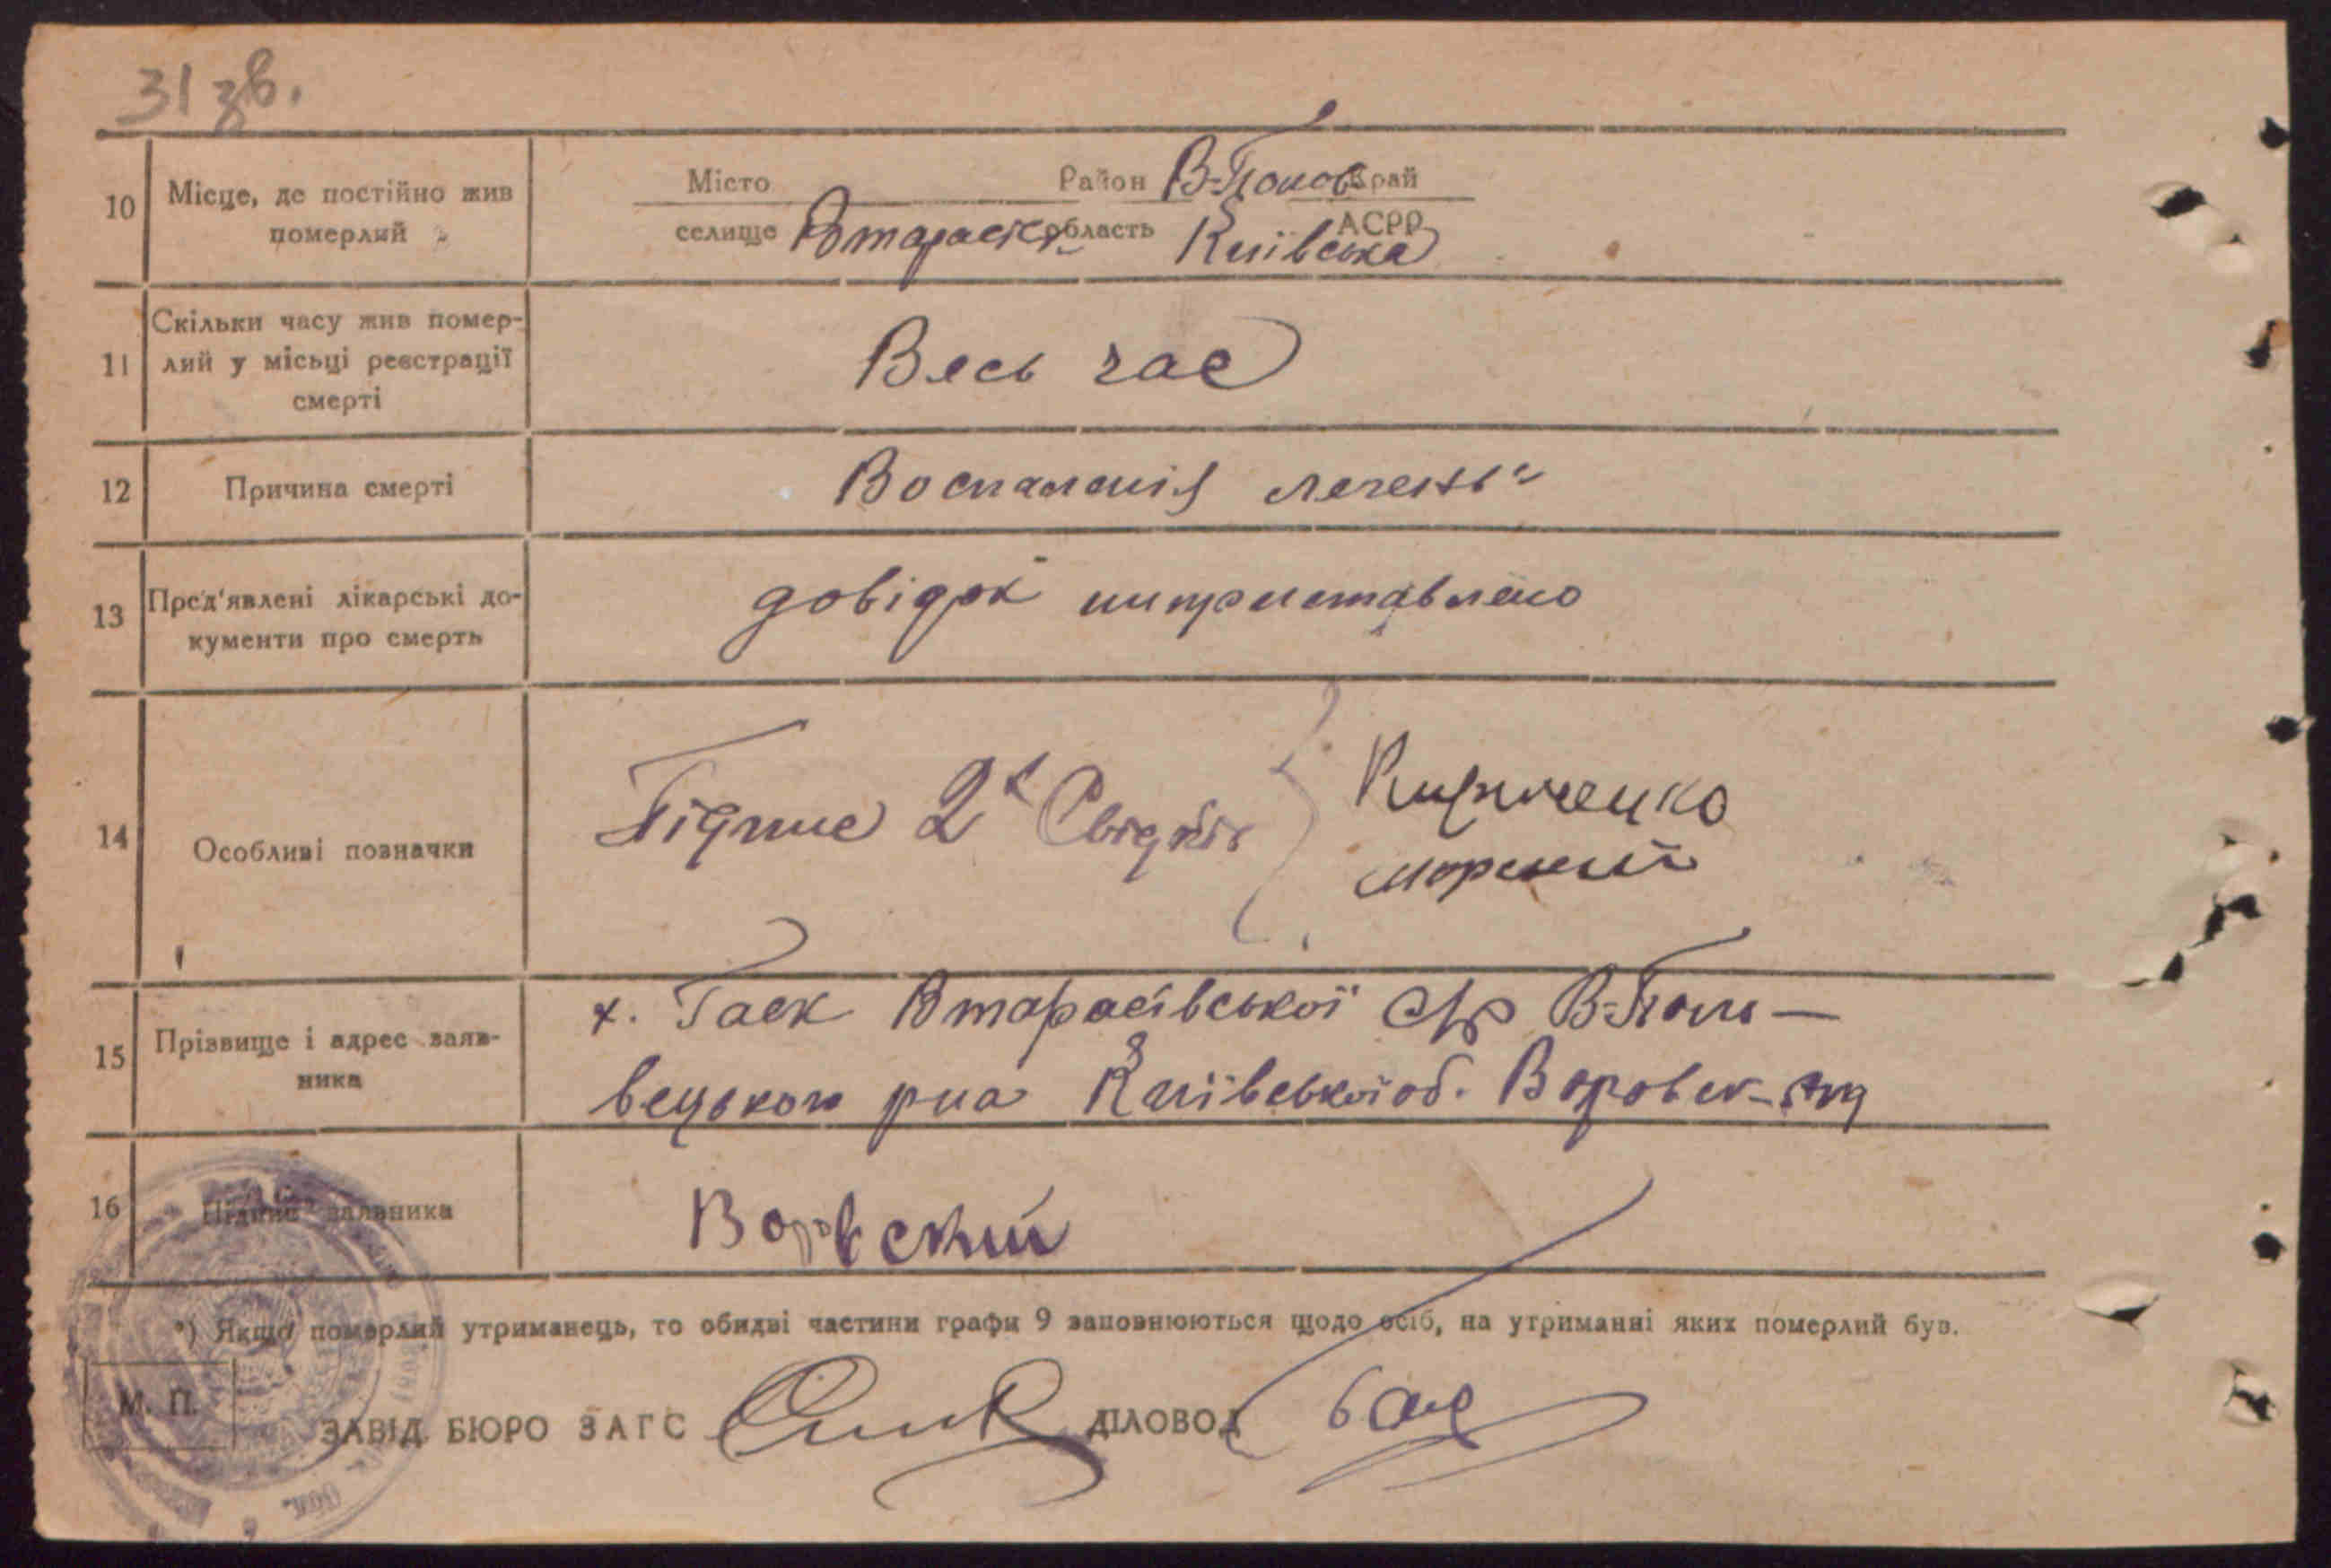 31 зв.
10 Місце, де постійно жив померлий
Місто Район В-Полов Край
селище Втарасівк область Київська АСРР
11 Скільки часу жив помер-
лий у місьці реєстрації
смерті
Весь час
12 Причина смерті
Воспаленія легень
13 Пред'явлені лікарські до-
кументи про смерть
довідки
14 Особливі позначки
Підпис 2х Свідків
Кириченко
15 Прізвище і адрес заяв-
ника
х. Гаєк Втарасівської с/р В-Поло-
вецького р-на Київської об.
16 Підпис заявника
Воровский
*) Якщо померлий утриманець, то обидві частини графи 9 заповнюються щодо осіб, на утриманні яких померлий був.
М. П.
ЗАВІД. БЮРО ЗАГС ДІЛОВОД